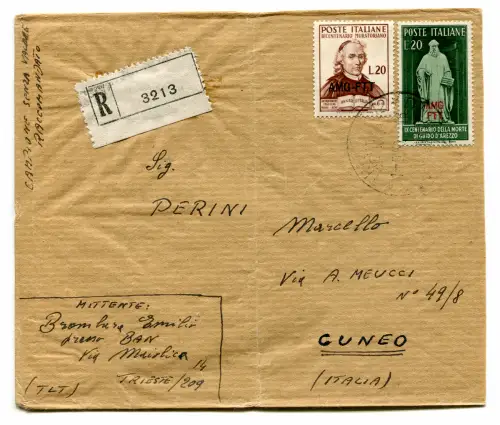 CAMPIONE SENZA VALORE
RACCOMANDATO
R
3213
POSTE ITALIANE
BICENTENARIO MURATORIANO
L.20
AMG-FTT
POSTE ITALIANE
L.20
AMG
FTT
IX CENTENARIO DELLA MORTE
DI GUIDO D'AREZZO
Sig.
PERINI
Marcello
Via A. MEUCCI
N° 49/8
CUNEO
(ITALIA)
MITTENTE:
Emilio
presso BAN
Via
14
TRIESTE/209
(TLT.)